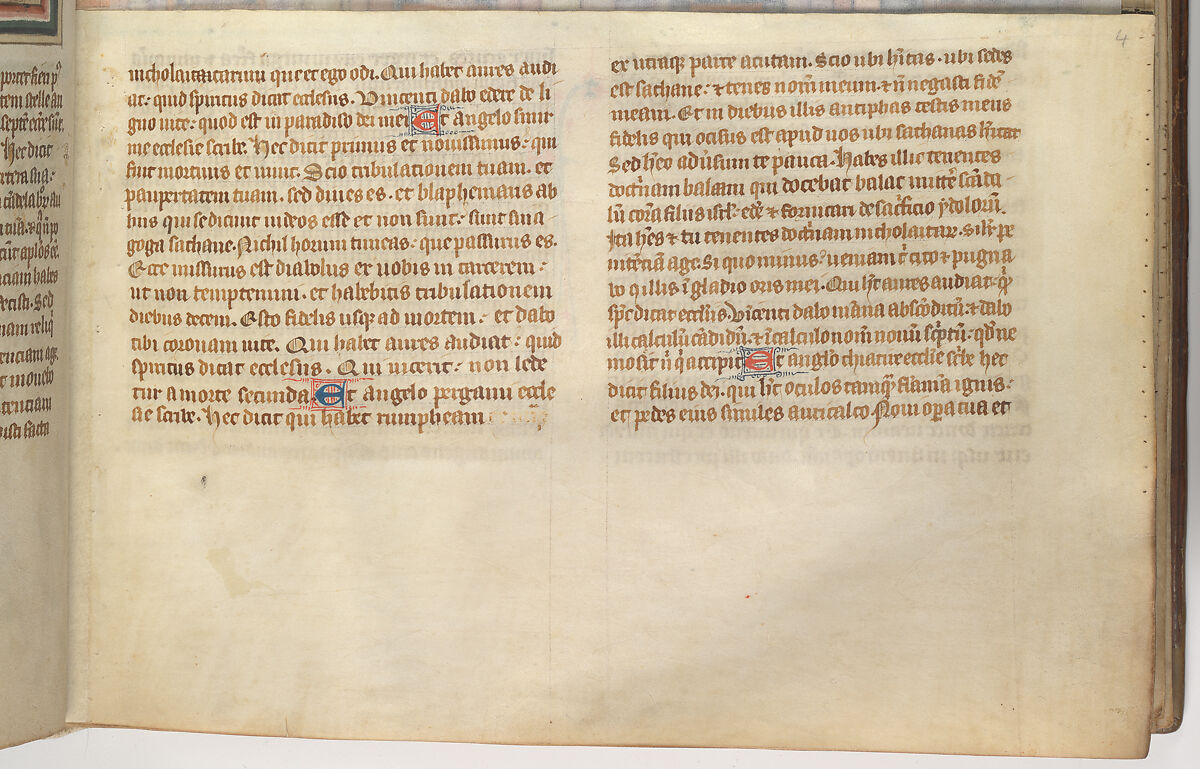 pot
tem stelle
septe
Hec dicit
nicholaitaru͞m que et ego odi. Qui habet aures audi
at: quid spiritus dicat ecclesiis. Vincenti dabo edere de li
gno uite: quod est in paradiso dei mei Et angelo smir
ne ecclesie scribe. Hec dicit primus et nouissimus: qui
fuit mortuus et uiuit. Scio tribulationem tuam. et
paupertatem tuam. sed diues es. et blaphemaris ab
hiis qui se dicunt iudeos esse et non sunt: sunt sina
goga sathane. Nichil horum timeas: que passurus es.
Ecce missurus est diabolus ex uobis in carcerem:
ut non temptemini. et habebitis tribulationem
diebus decem. Esto fidelis usq̄ ad mortem: et dabo
tibi coronam uite. Qui habet aures audiat: quid
spiritus dicat ecclesiis. Qui uicerit: non lede
tur a morte secunda Et angelo pergami eccle
ae scribe. Hec dicit qui habet rumpheam
4
ex utraq̄ parte acutam. Scio ubi h̄itas. ubi sedes
est sathane: ⁊ tenes nom̄ meum. ⁊ n̄ negasti fidē
meam. Et in diebus illis antiphas testis meus
fidelis qui ocisus est apud uos ubi sathanas h̄itat
Sed h̄eo adūsum te pauca. Habes illic tenentes
doct̄nam balaam qui docebat balac mittē scāda
lū corā filiis isrł. edē ⁊ fornicari de sac̄ficio ydolorū.
Ita h̄es ⁊ tu tenentes doct̄nam nicholaitar̄. silr̄ pe
nitēciā age. Si quo minus: ueniam t̄ cito ⁊ pugna
bo c̄ illis ī gladio oris mei. Qui h̄t aures audiat. q̄
sp̄c dicat eccłiis. Vīcenti dabo māna abscōditū. ⁊ dabo
illi calculū cādidū. ⁊ ī calculo nom̄ nouū sc̄ptū. qd̄ ne
mo scit n̄ q̄ accipit Et anglo thiatire ecclīe sc̄be hec
dicit filius dei. qui h̄t oculos tamq̄ flāmā ignis:
et pedes eius similes auricalco. Noui opa tua et